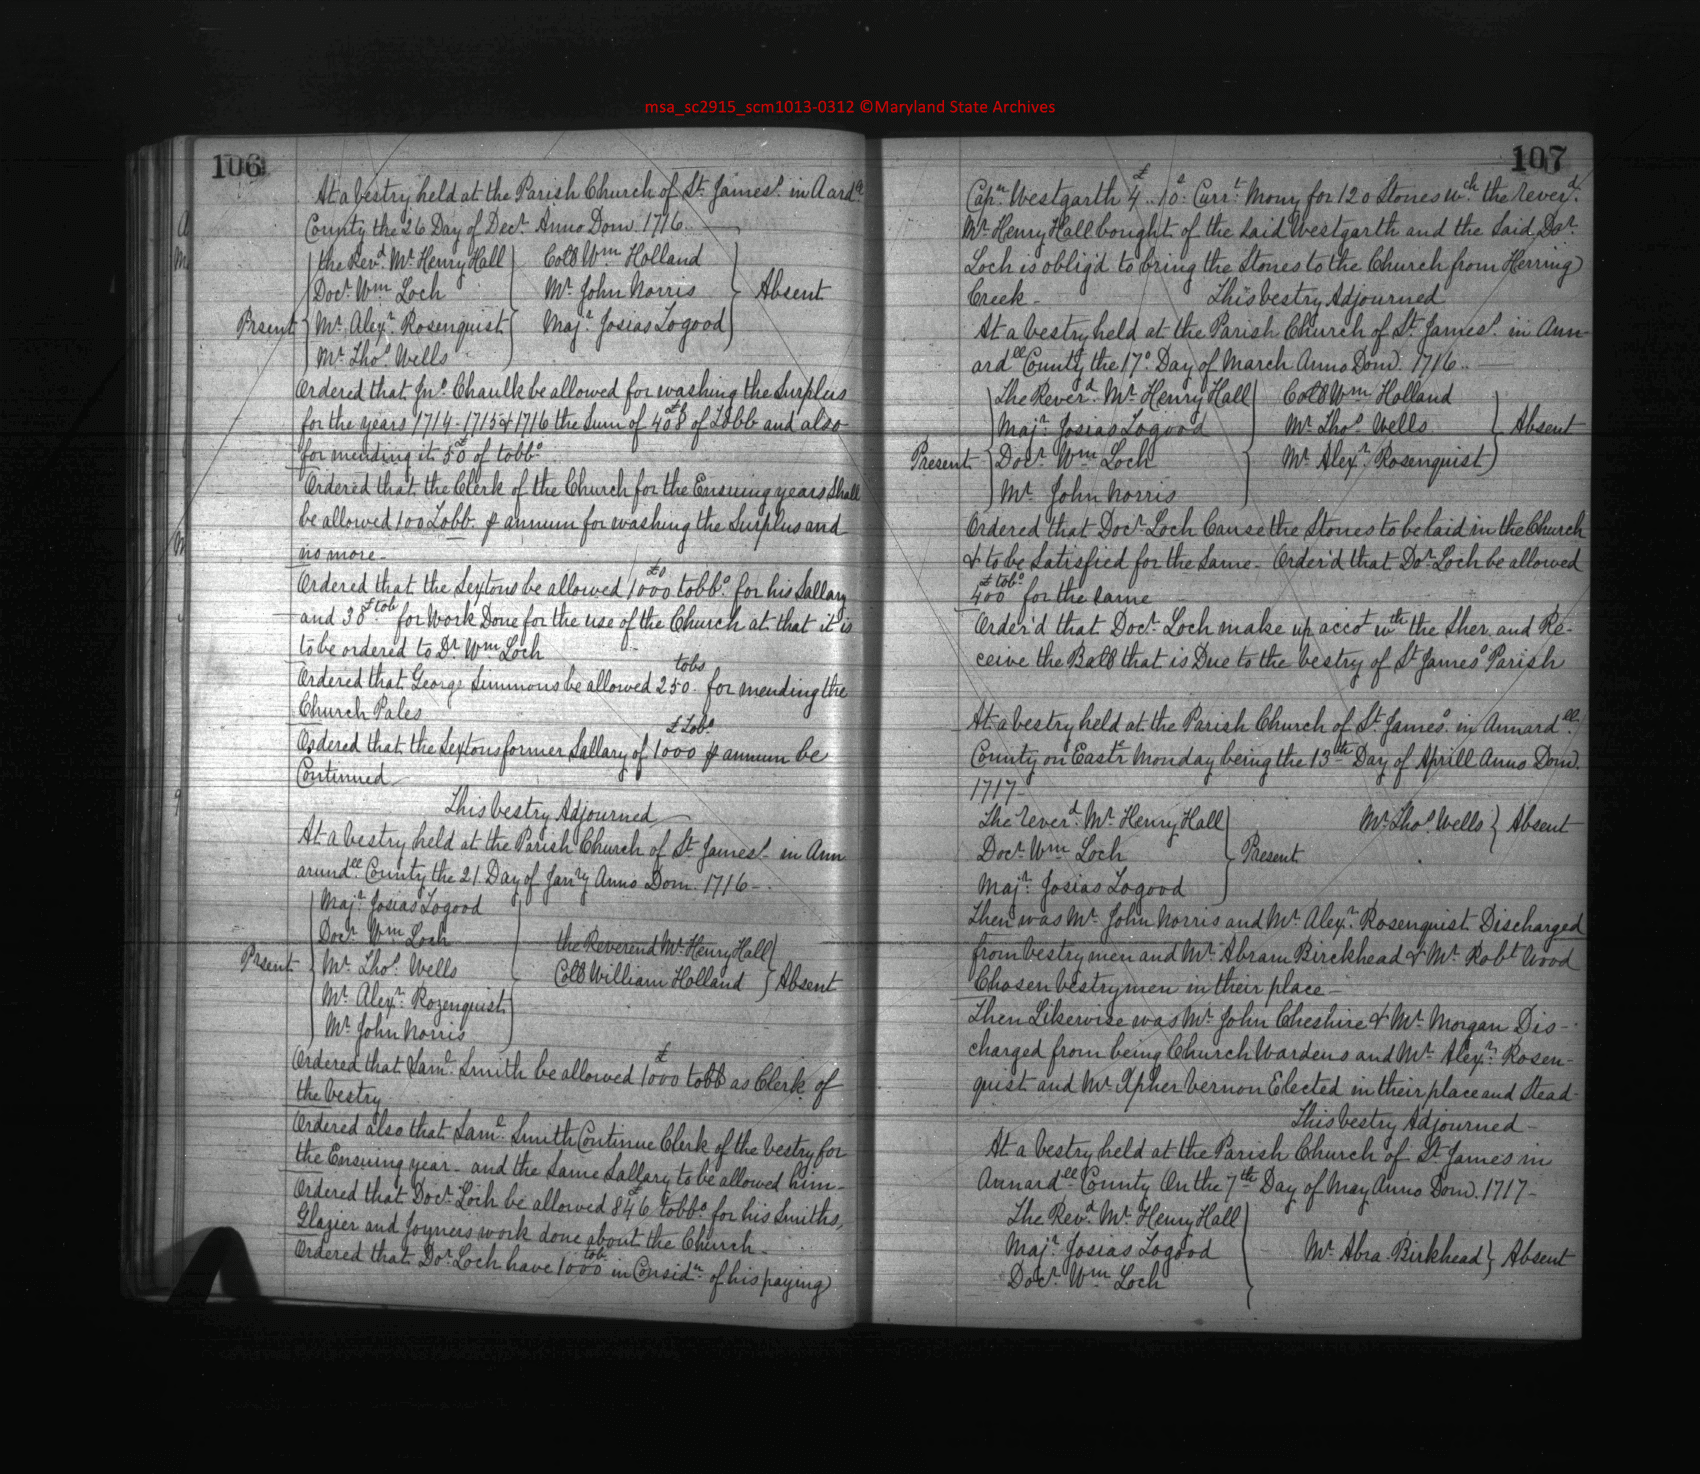 msa_sc2915_scm1013-0312 ©Maryland State Archives
106
At a vestry held at the Parish Church of St. James's in A ard.ll
County the 26 Day of Decr. Anno Dom. 1716
the Revd. Mr. Henry Hall Coll Wm Holland
Docr. Wm Loch Mr. John Norris Absent
Prsent Mr. Alexr. Rosenquist Majr. Josias Togood
Mr. Thos. Wells
Ordered that Jno. Chaulk be allowed for washing the Surplus
for the years 1714-1715 & 1716 the Sum of 408 £ of Tobb and also
for mending it 50 £ of tobbo.
Ordered that the Clerk of the Church for the Ensuing years Shall
be allowed 100 Tobb. ⅌ annum for washing the Surplus and
no more -
Ordered that the Sextons be allowed 1000 £s tobbo. for his Sallary
and 30 £ tob for Work Done for the use of the Church at that it is
to be ordered to Dr. Wm Loch
Ordered that George Simmons be allowed 250 tobs for mending the
Church Pales
Ordered that the Sextons former Sallary of 1000 £ Tobo. ⅌ annum be
Continued
This vestry Adjourned
At a vestry held at the Parish Church of St. James's in Ann
arundll County the 21 Day of Janry Anno Dom. 1716 -
Majr. Josias Togood
Docr. Wm Loch the Reverend Mr. Henry Hall
Prsent Mr. Thos. Wells Coll William Holland Absent
Mr. Alexr. Rozenquist
Mr. John Norris
Ordered that Saml. Smith be allowed 1000 £ tobb as Clerk of
the vestry
Ordered also that Saml. Smith Continue Clerk of the vestry for
the Ensuing year - and the Same Sallary to be allowed him -
Ordered that Docr. Loch be allowed 846 £ tobbo. for his Smiths,
Glazier and Joyners work done about the Church -
Ordered that Dor. Loch have 1000 tob in Considn. of his paying
107
Capn. Westgarth £4..10s. Currt. Mony for 120 Stones wch the Reverd.
Mr. Henry Hall bought of the Said Westgarth and the Said Dor.
Loch is oblig'd to bring the Stones to the Church from Herring
Creek - This vestry Adjourned
At a vestry held at the Parish Church of St. James's in Ann-
ardll County the 17o. Day of March Anno Dom. 1716..
The Reverd. Mr. Henry Hall Coll Wm Holland
Majr. Josias Togood Mr. Thos. Wells Absent
Present Docr. Wm Loch Mr. Alexr. Rosenquist
Mr. John Norris
Ordered that Docr. Loch Cause the Stones to be laid in the Church
& to be Satisfied for the Same - Order'd that Dor. Loch be allowed
400 £ tobo for the same
Order'd that Docr. Loch make up accot. wth the Sher. and Re-
ceive the Ball that is Due to the vestry of St James's Parish
At a vestry held at the Parish Church of St. James's in Annardll
County on Eastr Monday being the 13th Day of Aprill Anno Dom.
1717
The Reverd. Mr. Henry Hall Mr. Thos. Wells Absent
Docr. Wm Loch Present
Majr. Josias Togood
Then was Mr. John Norris and Mr. Alexr. Rosenquist Discharged
from vestry men and Mr. Abram Birckhead & Mr. Robt Wood
Chosen vestrymen in their place -
Then Likewise was Mr. John Cheshire & Mr. Morgan Dis-
charged from being Church Wardens and Mr. Alexr. Rosen-
quist and Mr. Xpher Vernon Elected in their place and Stead -
This vestry Adjourned -
At a vestry held at the Parish Church of St. James in
Annardll County On the 7th Day of May Anno Dom. 1717 -
The Revd. Mr. Henry Hall
Majr. Josias Togood Mr. Abra. Birkhead Absent
Docr. Wm Loch